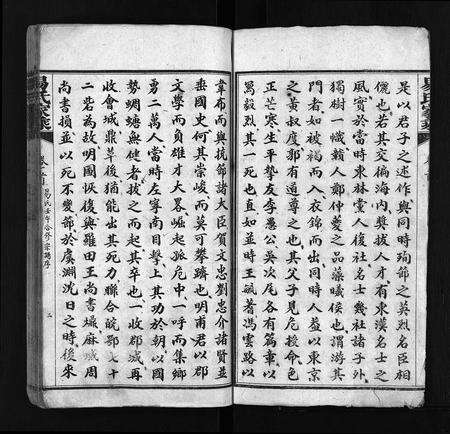 是以君子之述作與同時殉節之英烈名臣相
儷也若其交徧海內獎拔人才有東漢名士之
風實於當時東林黨人復社名士幾社諸子外
獨樹一幟賴人鄭仲夔之品藻曦侯也謂游其
門者如被褐而入衣錦而出同時人蓋以東京
之黃叔度郭有道尊之也其父子見危授命色
正芒寒生平摯友李愚公吳次尾各有篇重以
爲毅烈其一死也直如並時王毓蓍馮雲路以
韋布而與抗節諸大臣賀文忠劉忠介諸賢並
垂國史何其崇峻而莫可攀躋也明甫君以郡
文學而負雄才大畧崛起孤危中一呼而集鄉
勇二萬人當時左寧南目擊上其功於朝以國
勢蜩螗無健者拔之而起其卒也一收郡城再
收會城鼎革後猶能出其死力聯合皖鄂七十
二砦為故明國恢復與羅田王尚書爌麻城周
尚書損並以死不變節於虞淵沈日之時後來
易氏宗譜
卷首
易氏壬午合修宗譜序
二